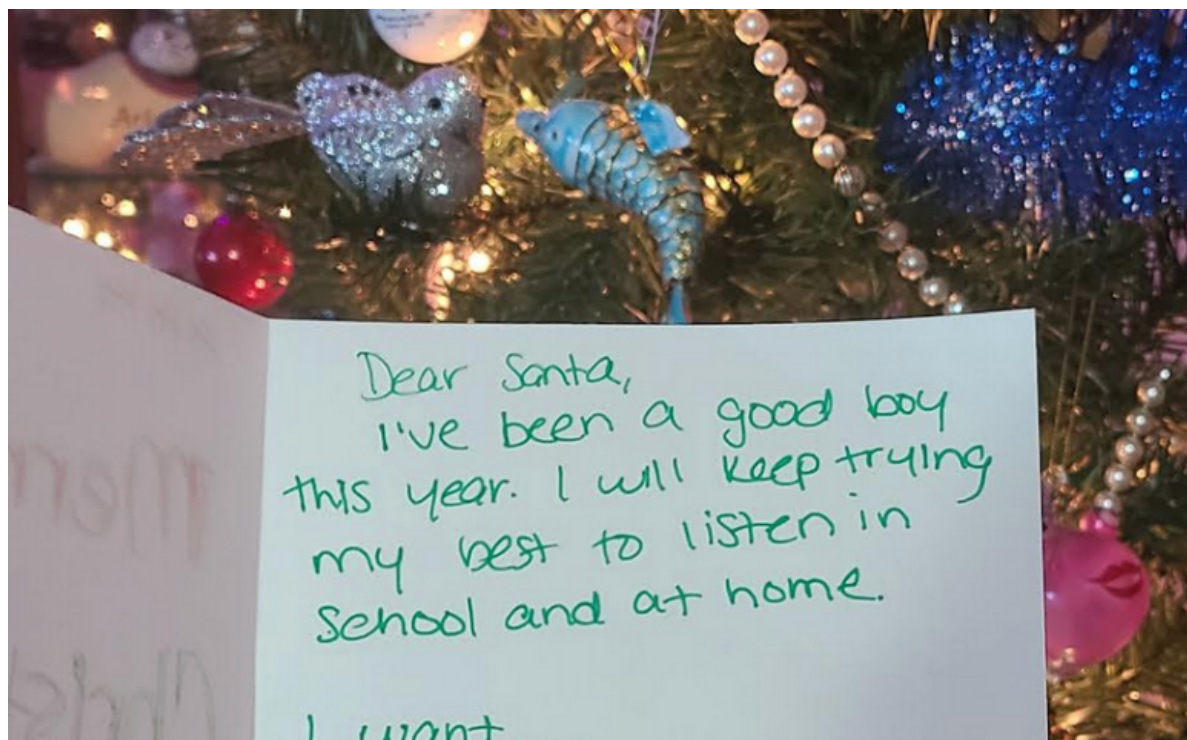 Dear Santa,
I've been a good boy
this year. I will keep trying
my best to listen in
school and at home.
I want